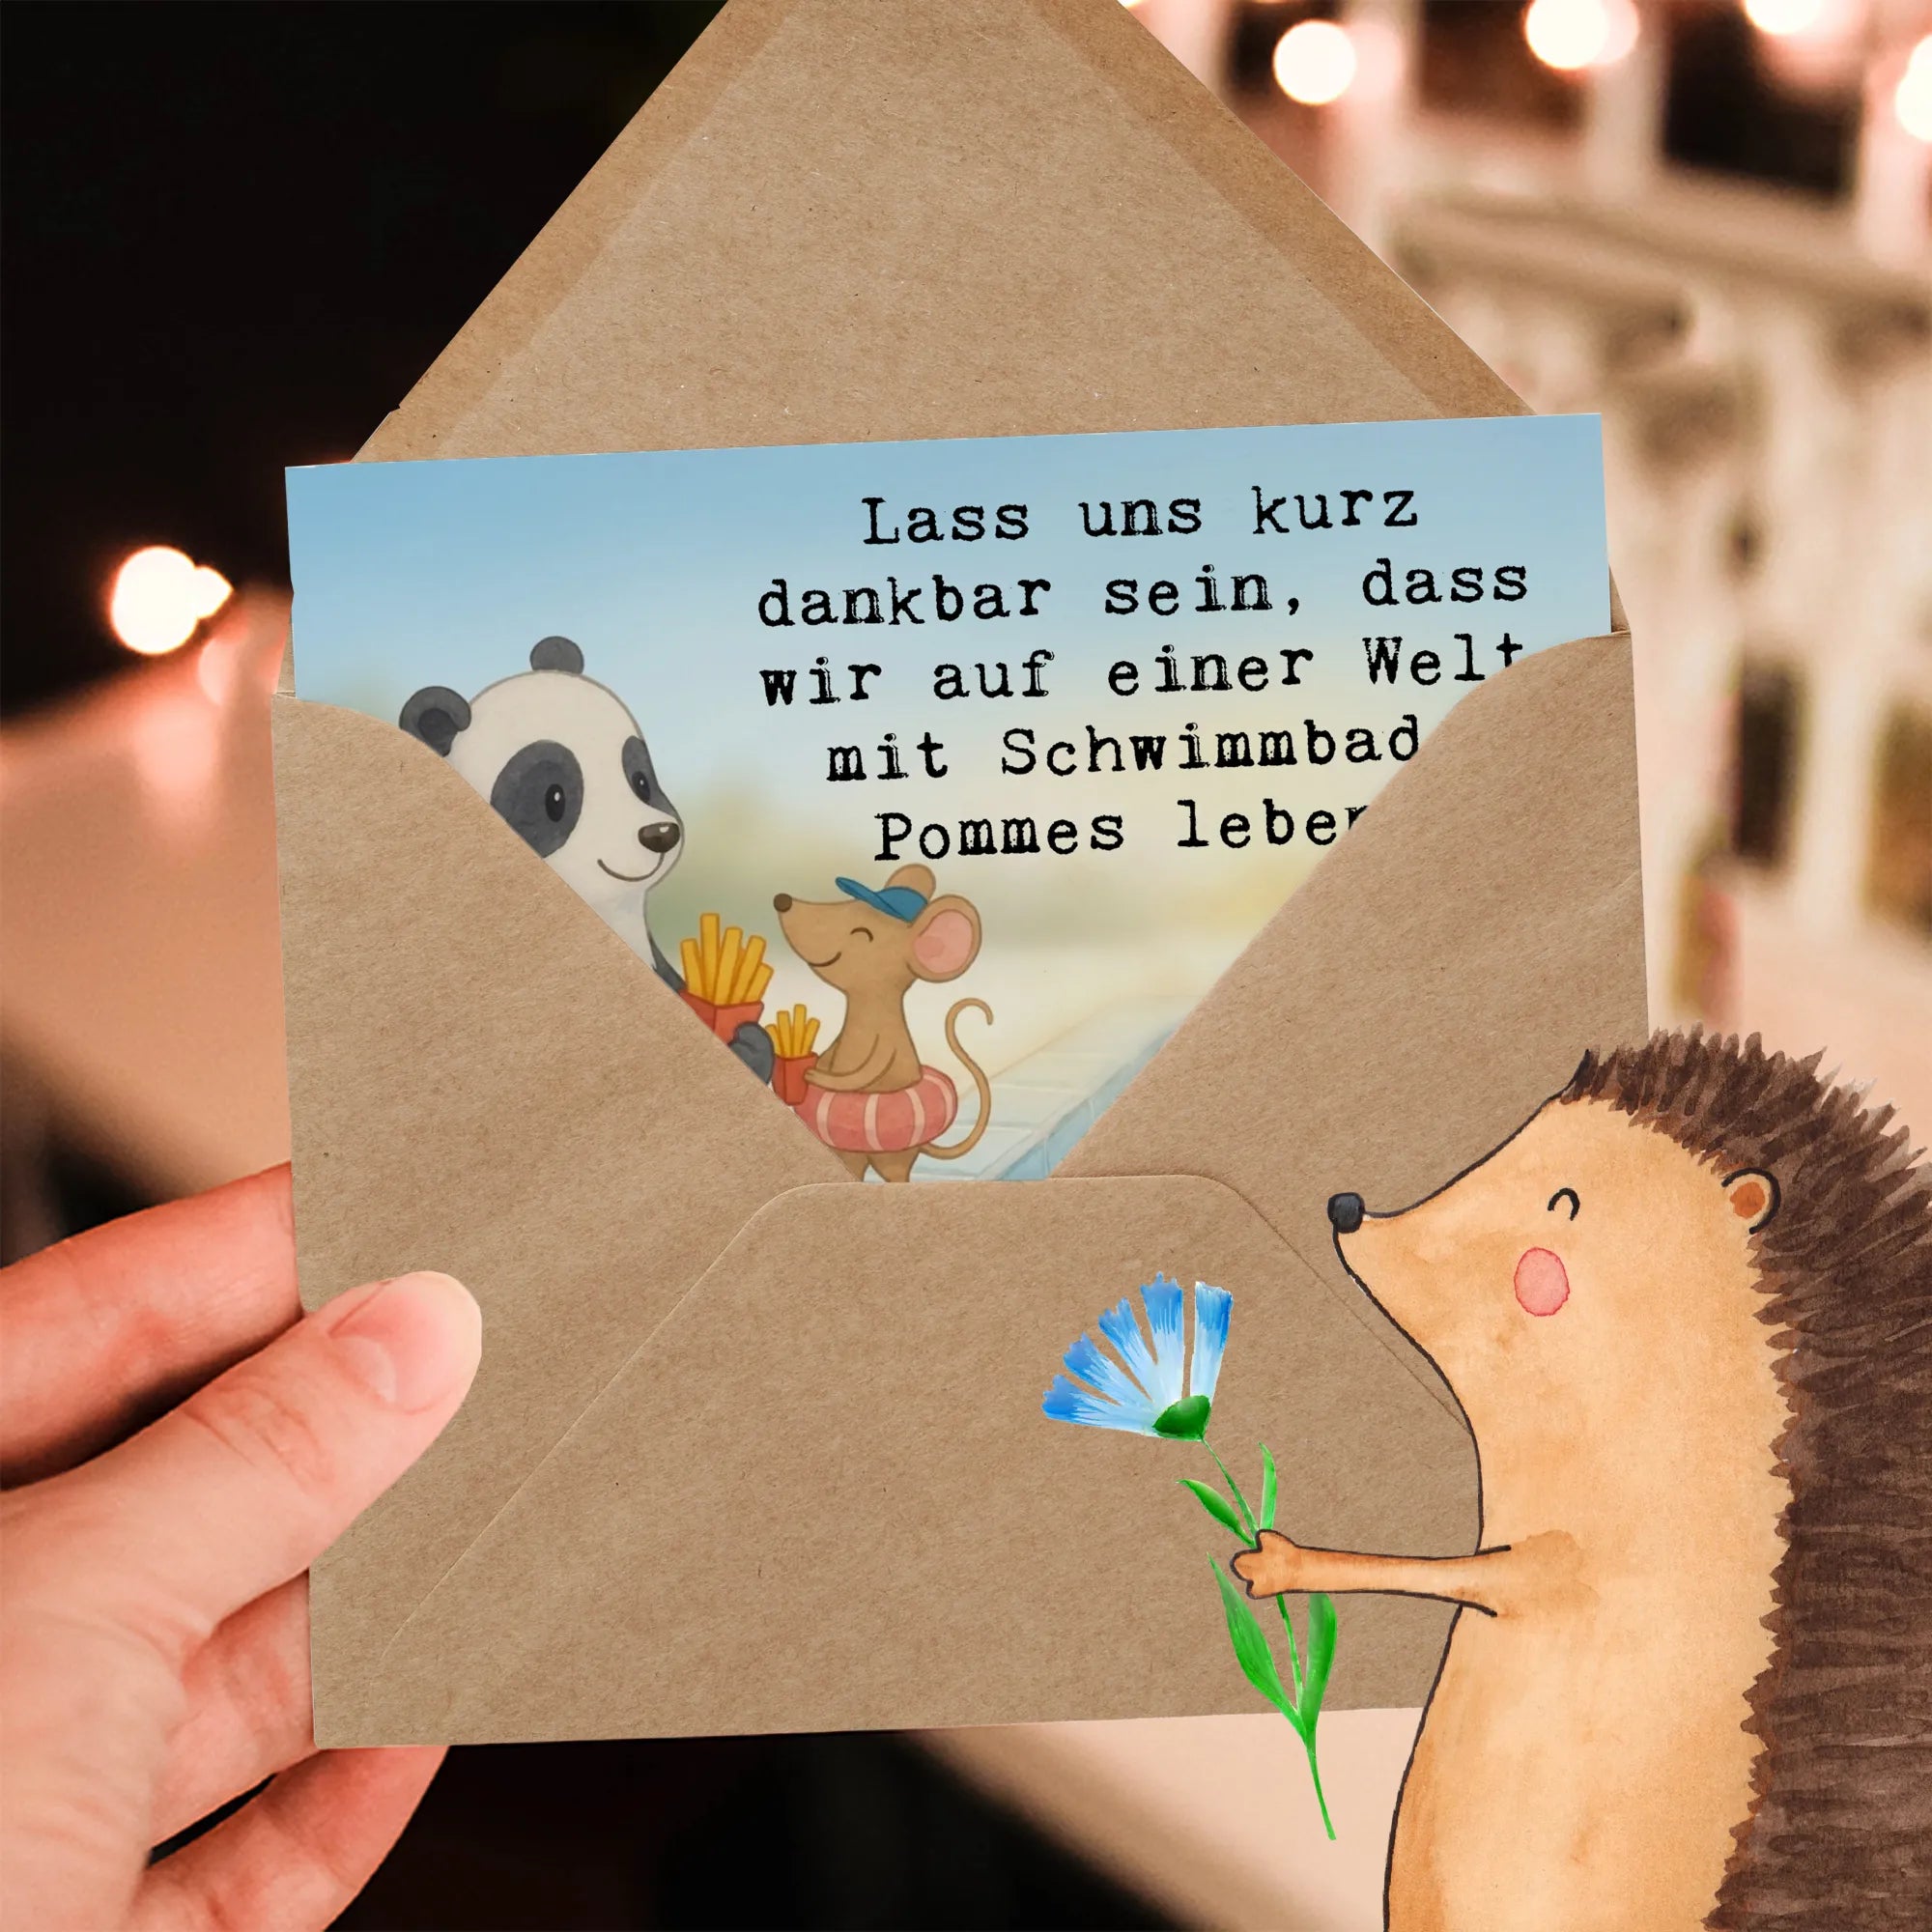 Lass uns kurz
dankbar sein, dass
wir auf einer Welt
mit Schwimmbad
Pommes leben